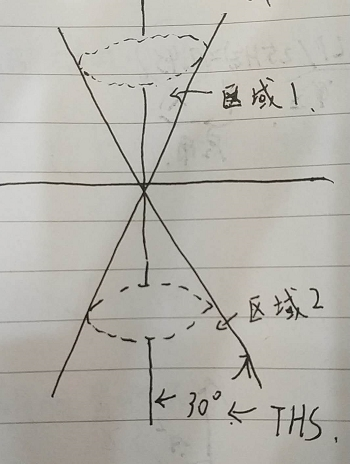 区域1.
区域2
30° ← THS.